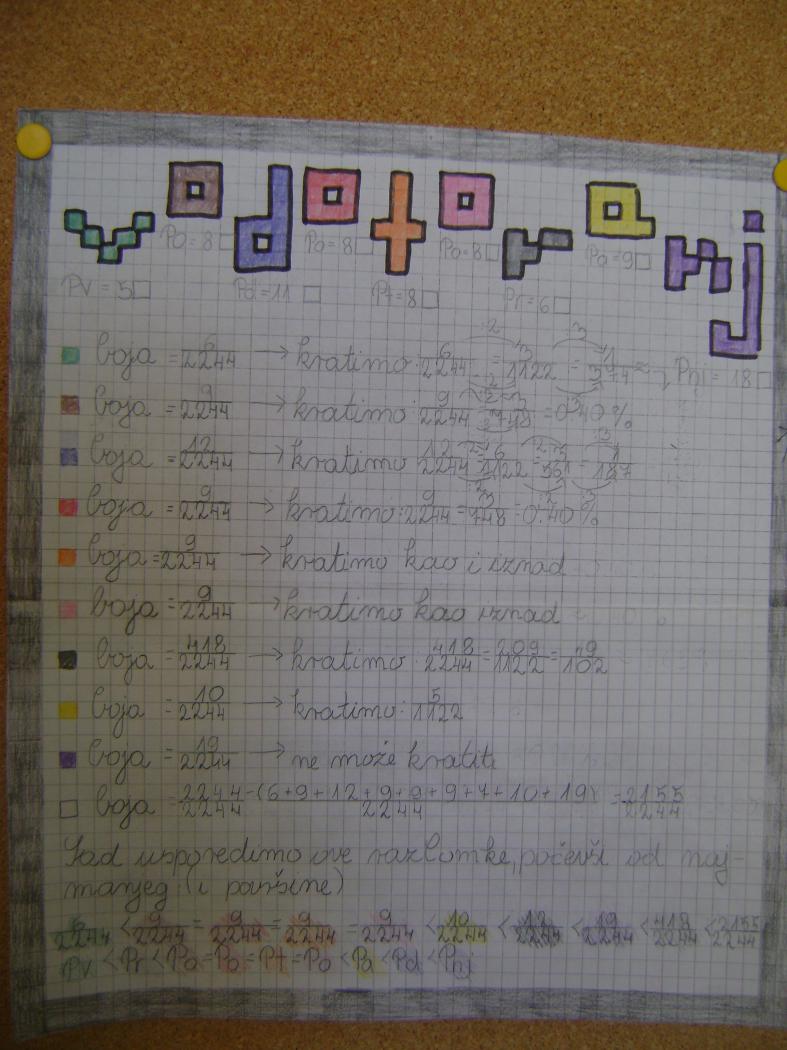 vodotoranj
Po=8□ Po=8□ Po=8□ Pa=9□
Pv=5□ Pd=11□ Pt=8□ Pr=6□
Pnj=18□
boja = 6/2244 → kratimo: 6/2244 = 3/1122 = 1/374
boja = 9/2244 → kratimo: 9/2244 = 3/748 = 0.40%
boja = 12/2244 → kratimo 12/2244 = 6/1122 = 3/561 = 1/187
boja = 9/2244 → kratimo: 9/2244 = 3/748 = 0.40%
boja = 9/2244 → kratimo kao i iznad
boja = 9/2244 → kratimo kao iznad
boja = 418/2244 → kratimo: 418/2244 = 209/1122 = 19/102
boja = 10/2244 → kratimo: 5/1122
boja = 19/2244 → ne može kratiti
boja = 2244/2244 - (6+9+12+9+9+9+7+10+19)/2244 = 2155/2244
Sad usporedimo ove razlomke, počevši od naj-
manjeg (i površine)
6/2244 < 9/2244 = 9/2244 = 9/2244 = 9/2244 < 10/2244 < 12/2244 < 19/2244 < 418/2244 < 2155/2244
Pv < Pr < Po = Po = Pt = Po < Pa < Pd < Pnj